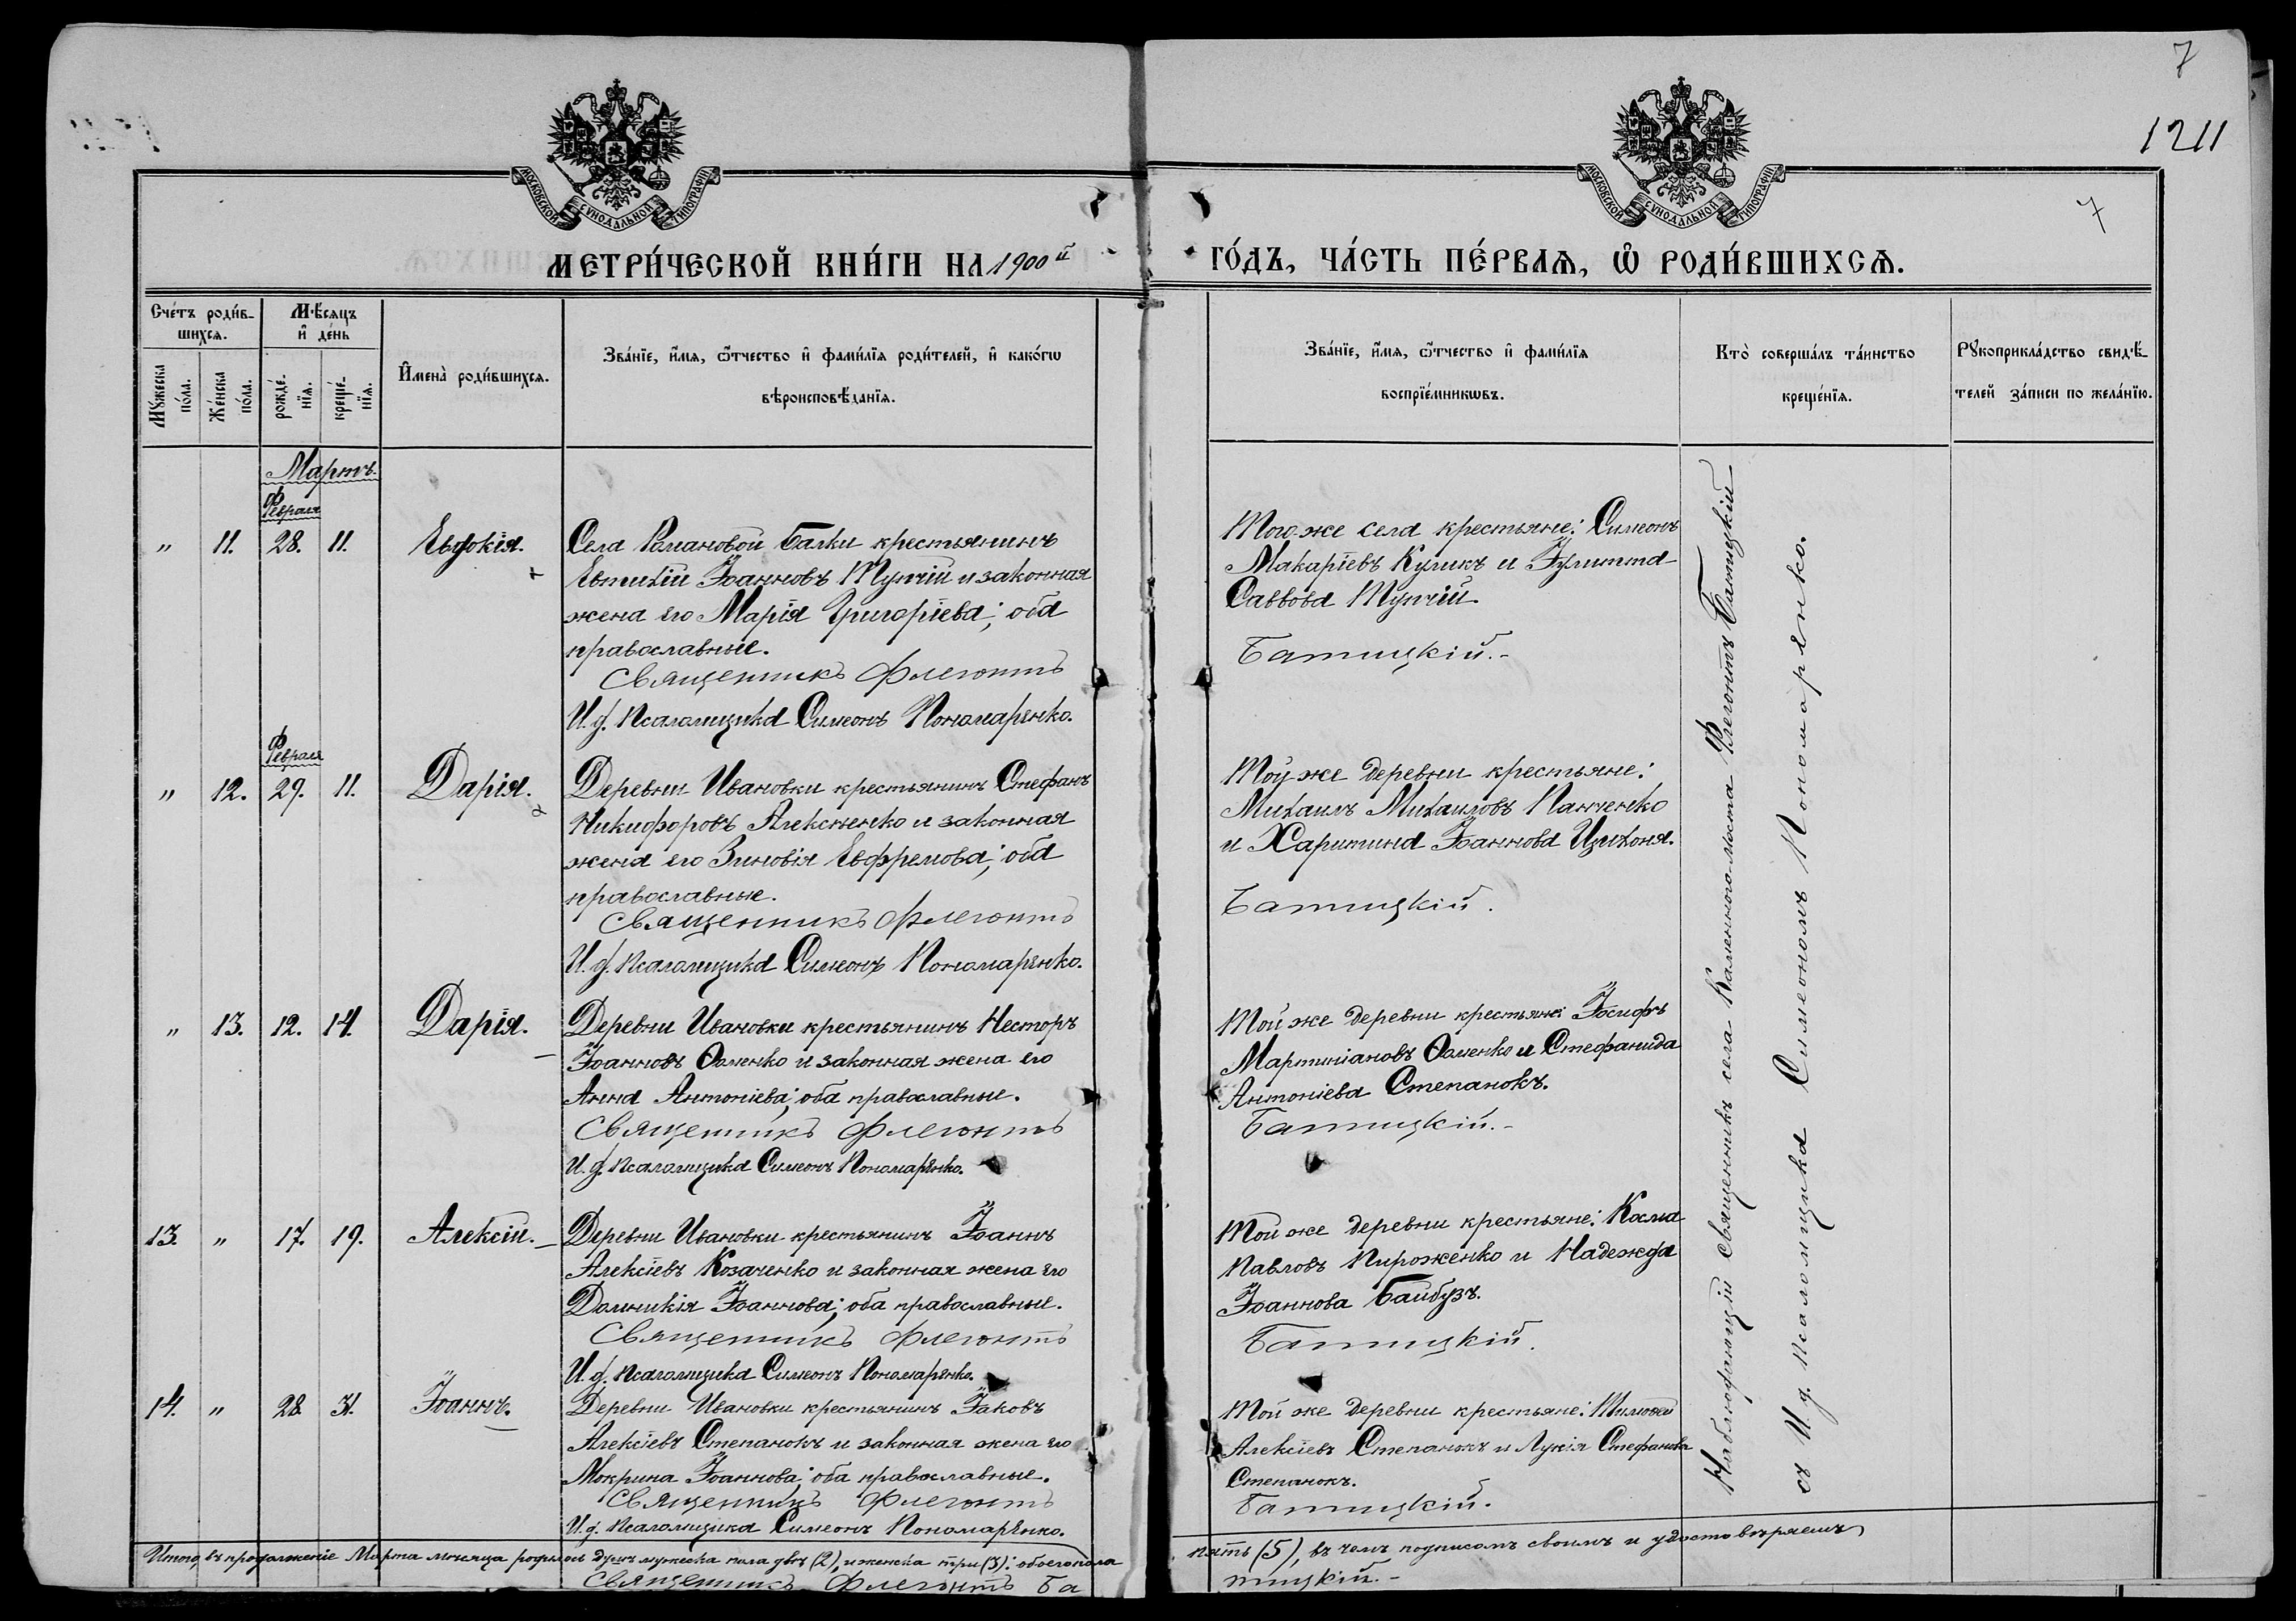 7
1211
7
МОСКОВСКОЙ СѴНОДАЛЬНОЙ ТИПОГРАФІИ
МОСКОВСКОЙ СѴНОДАЛЬНОЙ ТИПОГРАФІИ
МЕТРИ́ЧЕСКОЙ КНИ́ГИ НА 1900й
ГО́ДЪ, ЧА́СТЬ ПЕ́РВАѦ, Ѡ҆ РОДИ́ВШИХСѦ.
Сче́тъ роди́в-
шихсѧ.
Мꙋ́жеска по́ла.
Же́нска по́ла.
М҆ѣсѧцъ
и҆ де́нь
рожде́-
нїѧ.
креще́-
нїѧ.
И҆мена̀ роди́вшихсѧ.
Зва́нїе, и҆́мѧ, ѻ҆́тчество и҆ фами́лїѧ роди́телей, и҆ како́гѡ
вѣроисповѣ́данїѧ.
Зва́нїе, и҆́мѧ, ѻ҆́тчество и҆ фами́лїѧ
воспрїе́мникѡвъ.
Кто̀ соверша́лъ та́инство
креще́нїѧ.
Рꙋкоприкла́дство свидѣ́-
телей за́писи по жела́нїю.
Мартъ.
Февраля
" 11. 28. 11. Евдокія.
Села Романовой Балки крестьянинъ
Евтихій Іоанновъ Тупчій и законная
жена его Марія Григоріева; оба
православные.
Священникъ Флегонтъ
И. д. псаломщика Симеонъ Пономаренко.
Того-же села крестьяне: Симеонъ
Макаріевъ Куликъ и Іулитта
Саввова Тупчій.
Батицкій.-
Февраля
" 12. 29. 11. Дарія.
Деревни Ивановки крестьянинъ Стефанъ
Никифоровъ Алексѣенко и законная
жена его Зиновія Евфремова; оба
православные.
Священникъ Флегонтъ
И. д. псаломщика Симеонъ Пономаренко.
Той-же деревни крестьяне:
Михаилъ Михаиловъ Панченко
и Харитина Іоаннова Цихоня.
Батицкій.
" 13. 12. 14. Дарія.
Деревни Ивановки крестьянинъ Несторъ
Іоанновъ Оленко и законная жена его
Анна Антоніева; оба православные.
Священникъ Флегонтъ
И. д. псаломщика Симеонъ Пономаренко.
Той же деревни крестьяне: Іосифъ
Мартиніановъ Оленко и Стефанида
Антоніева Степанокъ.
Батицкій.-
13. " 17. 19. Алексій.
Деревни Ивановки крестьянинъ Іоаннъ
Алексіевъ Козаченко и законная жена его
Домникія Іоаннова; оба православные.
Священникъ Флегонтъ
И. д. псаломщика Симеонъ Пономаренко.
Той же деревни крестьяне: Косма
Павловъ Пироженко и Надежда
Іоаннова Байбузъ.
Батицкій.
14. " 28. 31. Іоаннъ.
Деревни Ивановки крестьянинъ Іаковъ
Алексіевъ Степанокъ и законная жена его
Мокрина Іоаннова; оба православные.
Священникъ Флегонтъ
И. д. псаломщика Симеонъ Пономаренко.
Той же деревни крестьяне: Тимоѳей
Алексіевъ Степанокъ и Лукія Стефанова
Степанокъ.
Батицкій.
Наблюдающій священникъ села Каменного-моста Флегонтъ Батицкій
съ И. д. псаломщика Симеономъ Пономаренко.
Итого, въ продолженіе Марта мѣсяца родилось душъ мужеска пола двѣ (2), и женска три (3); обоего пола
пять (5), въ чемъ подписомъ своимъ и удостовѣряемъ
Священникъ Флегонтъ Ба
тицкій.-